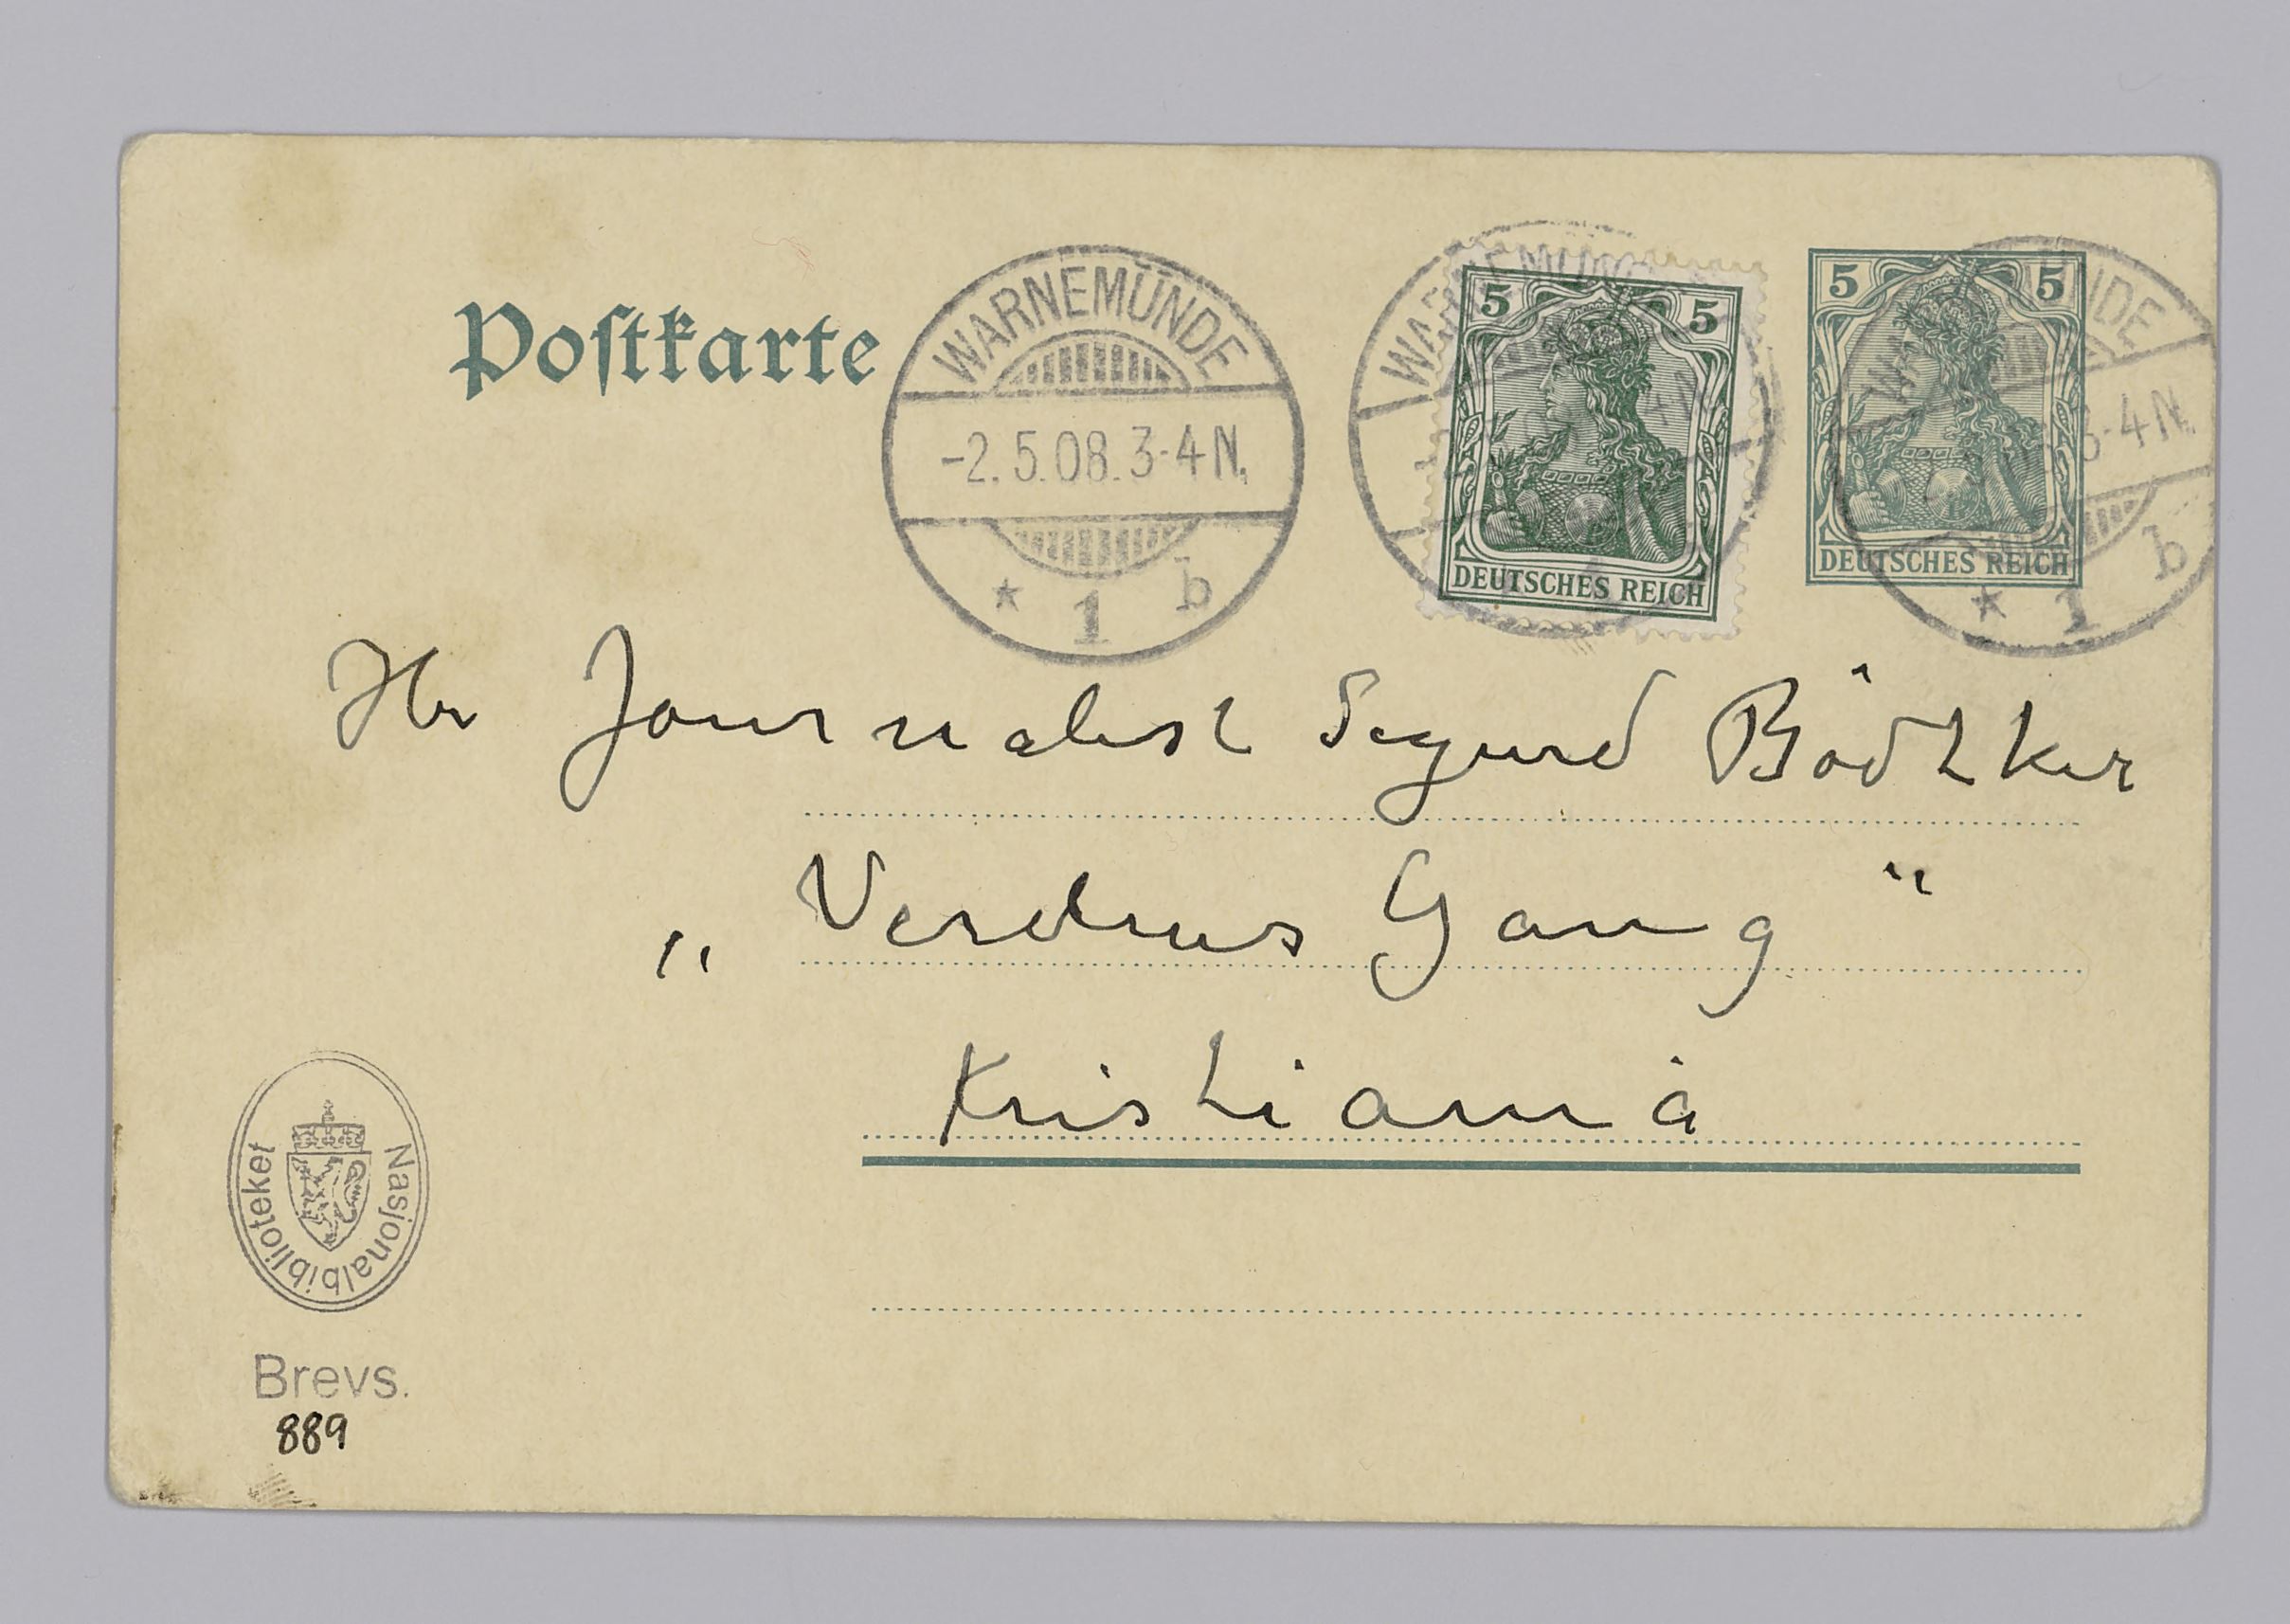 Postkarte
WARNEMÜNDE
-2.5.08.3-4N.
* 1 b
WARNEMÜNDE
5 5
DEUTSCHES REICH
5 5
DEUTSCHES REICH
3-4N.
* 1 b
Hr Journalist Sigurd Bödtker
„Verdens Gang“
Kristiania
Nasjonalbiblioteket
Brevs.
889